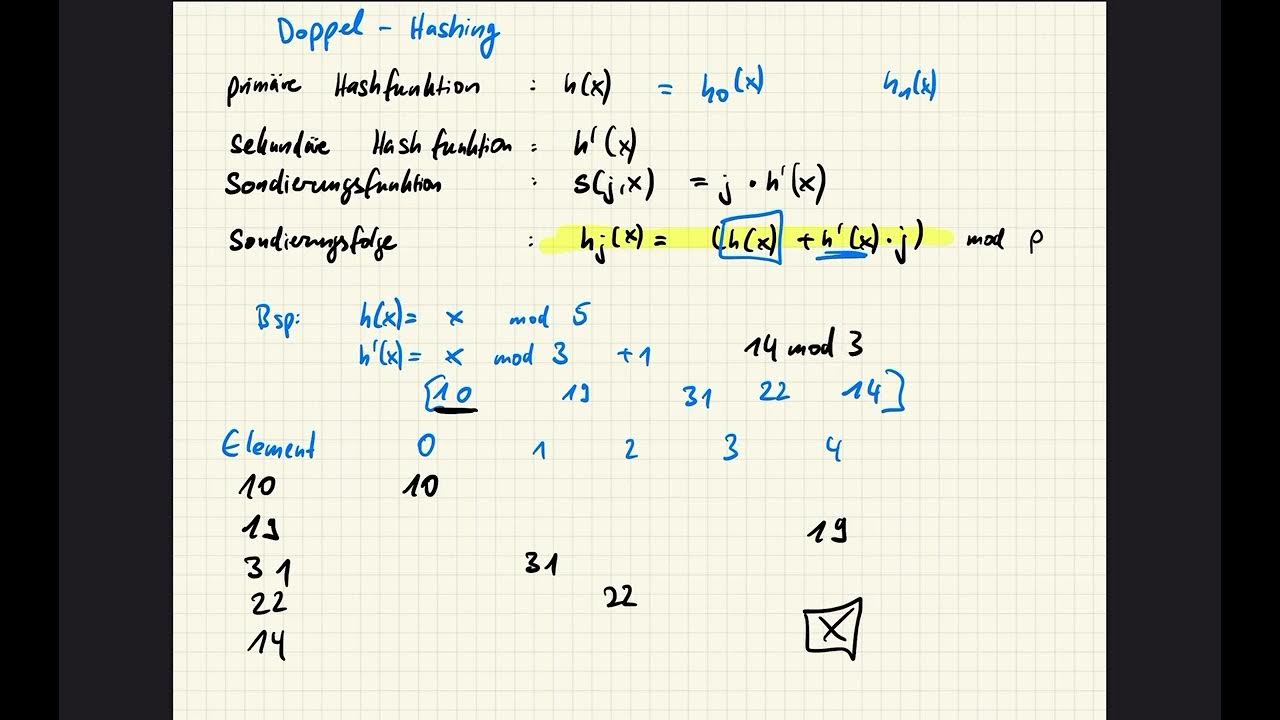 Doppel - Hashing
primäre Hashfunktion : h(x) = h₀(x) h₁(x)
Sekundäre Hashfunktion : h'(x)
Sondierungsfunktion : s(j,x) = j · h'(x)
Sondierungsfolge : hⱼ(x) = (h(x) + h'(x)·j) mod p
Bsp: h(x) = x mod 5
h'(x) = x mod 3 +1 14 mod 3
[10 19 31 22 14]
Element 0 1 2 3 4
10 10
19 19
31 31
22 22
14 X